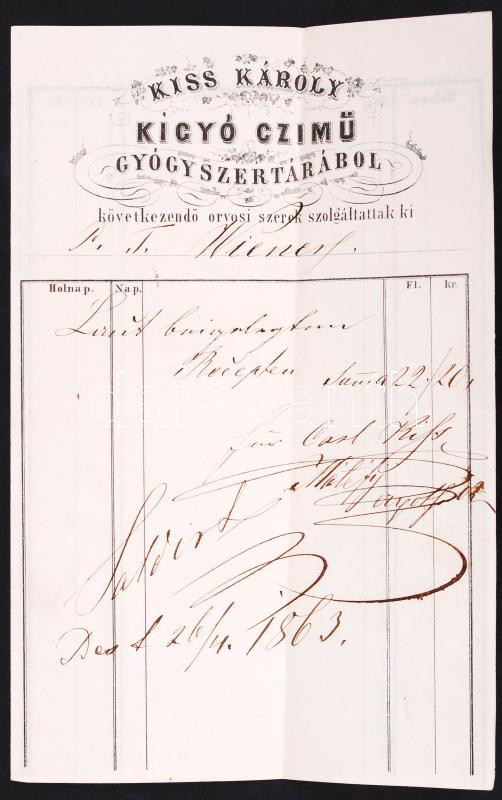 KISS KÁROLY
KIGYÓ CZIMŰ
GYÓGYSZERTÁRÁBOL
következendő orvosi szerek szolgáltattak ki
P. T. Wiener
Holnap. Nap. Fl. kr.
Laut beigelegten
Recepten Suma 22/20
für Carl Kiss
Saldirt
Pest 26/4. 1863.